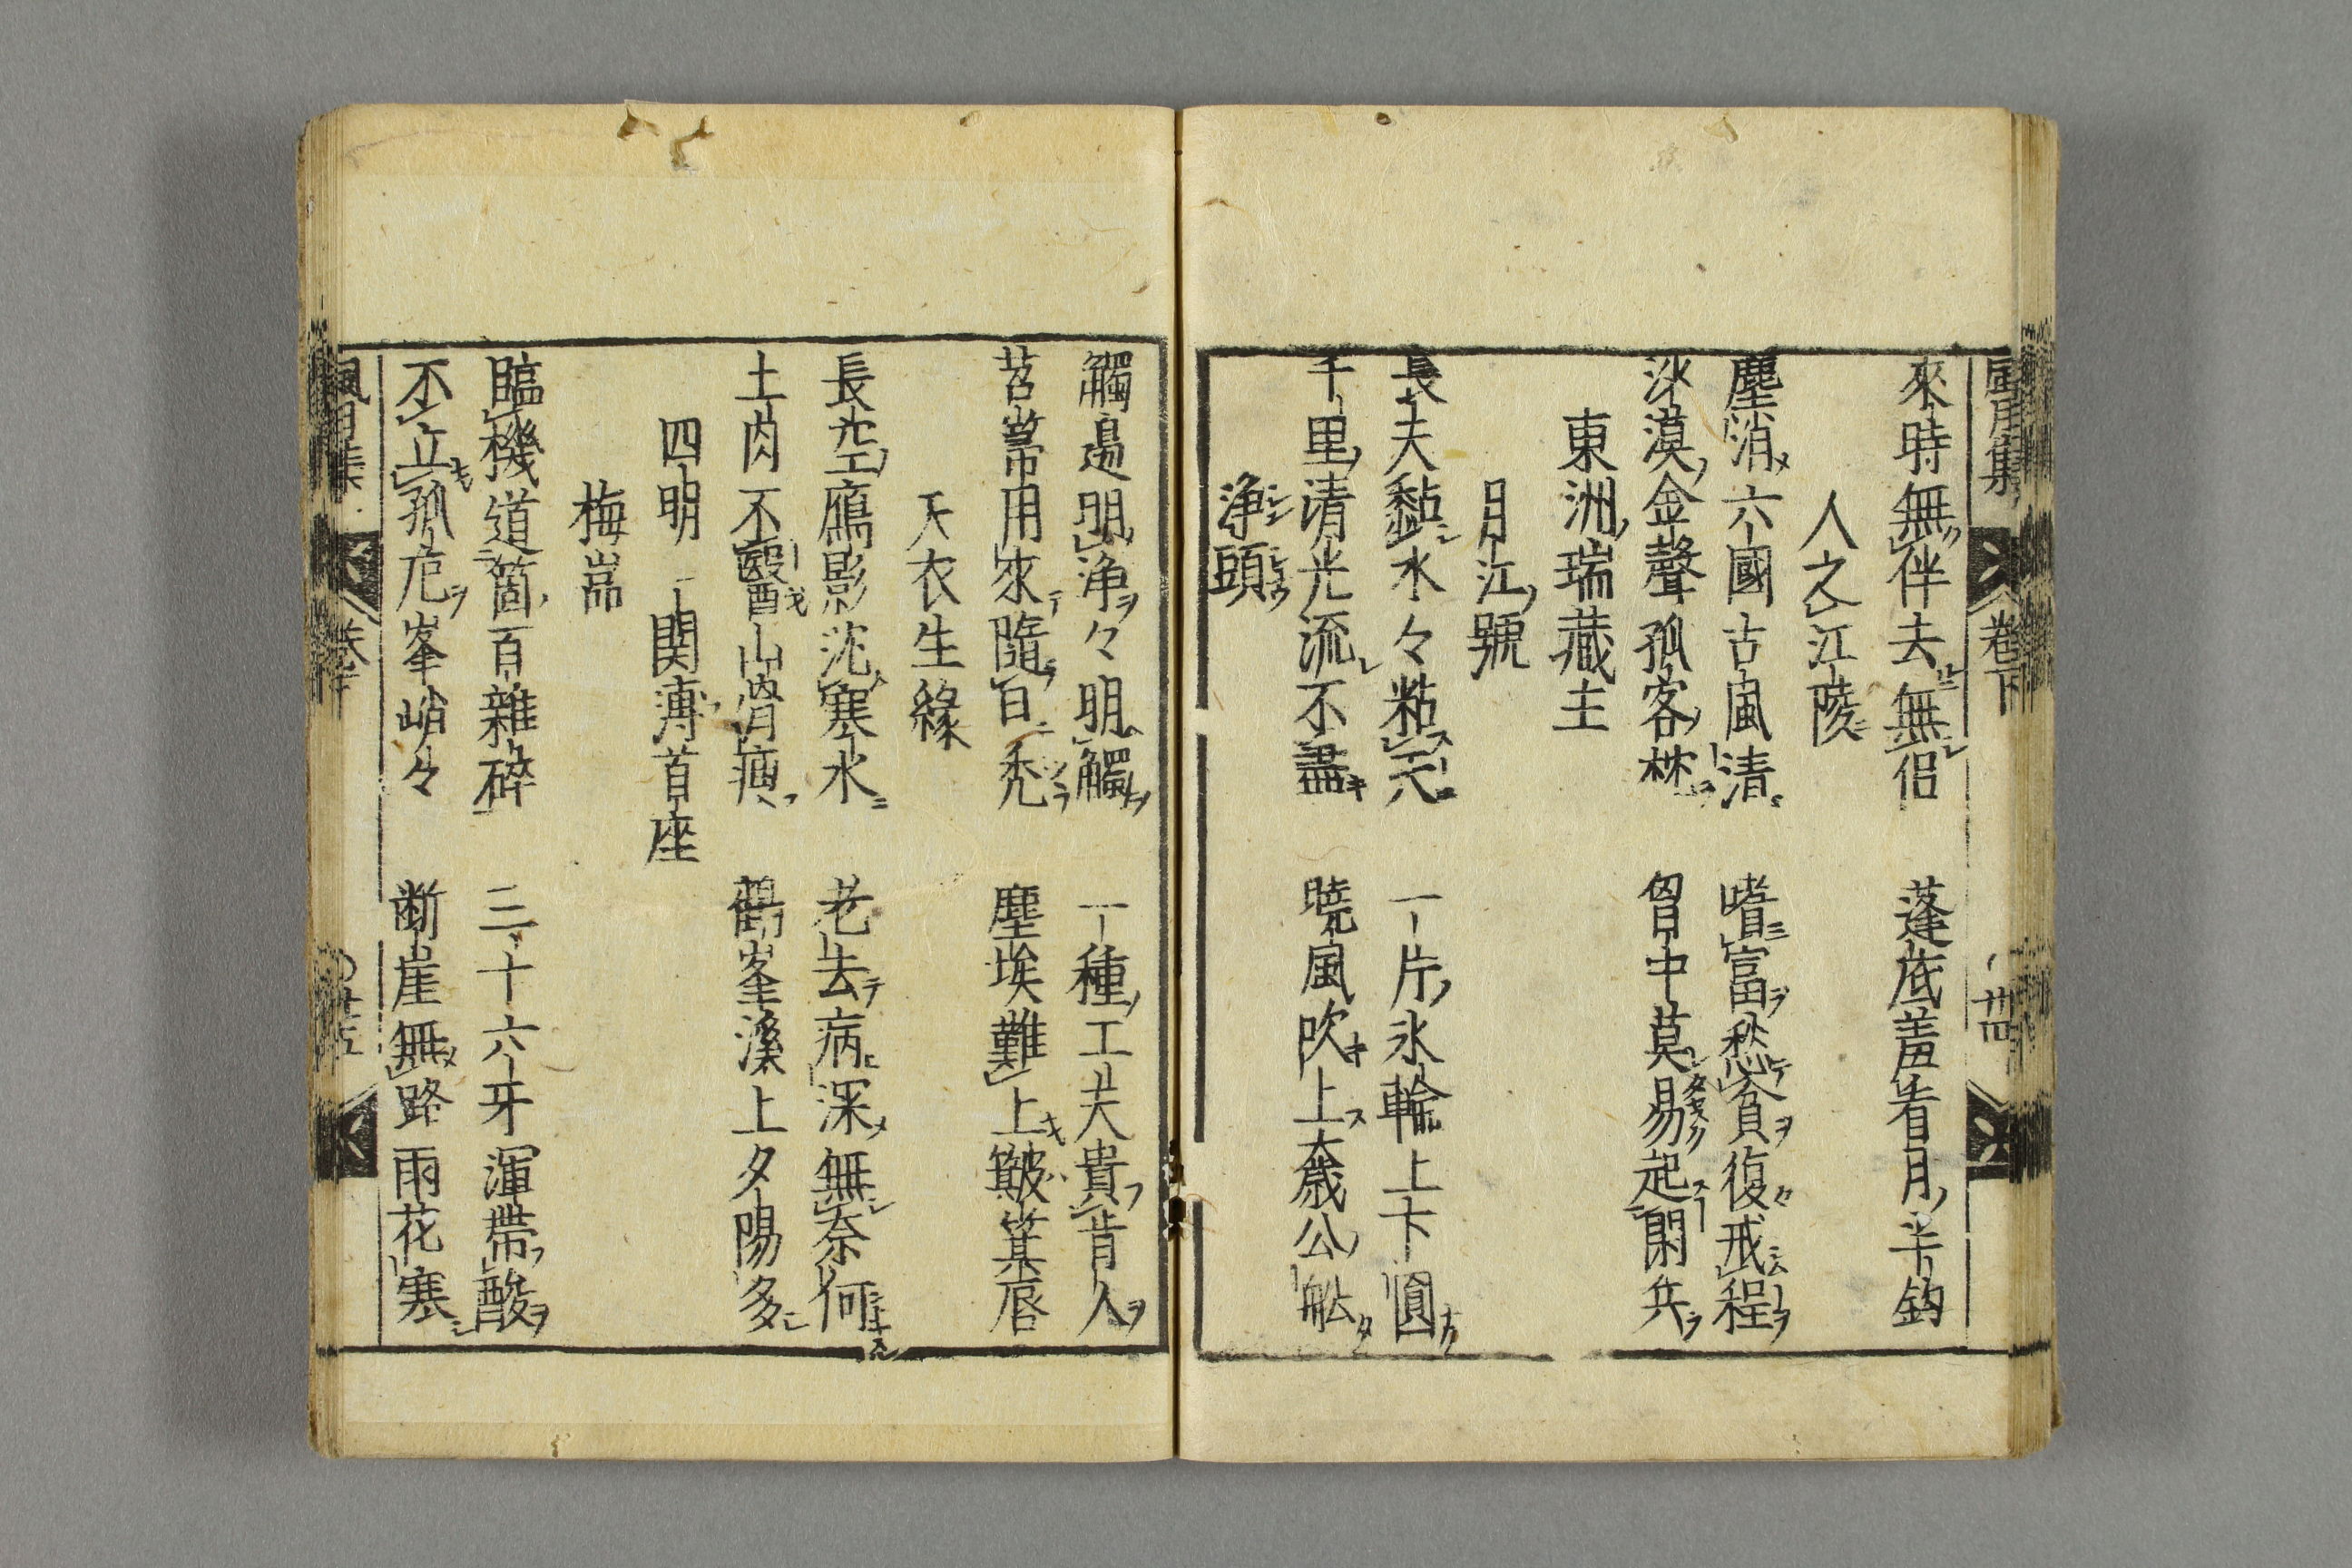 風月集 卷下 廿四
來時無伴去無侶 蓬底羞看月半鈎
人之江陵
塵消六國古風清 嗜富愁貧復戒程
沙漠金聲孤客枕 曾中莫易起閑兵
東洲瑞藏主
月江號
長天黏水々粘天 一片氷輪上下圓
千里清光流不盡 曉風吹上夜公舩
淨頭
觸邊明淨々明觸 一種工夫貴肯人
苕箒用來隨自禿 塵埃難上皺箕唇
天衣生緣
長空鴈影沈寒水 老去病深無奈何
土肉不醫山骨瘦 鶴峯溪上夕陽多
四明一関溥首座
梅嵓
臨機道箇百雜碎 三十六牙渾帶酸
不立孤危峯峭々 断崖無路雨花寒
風月集 卷下 廿五